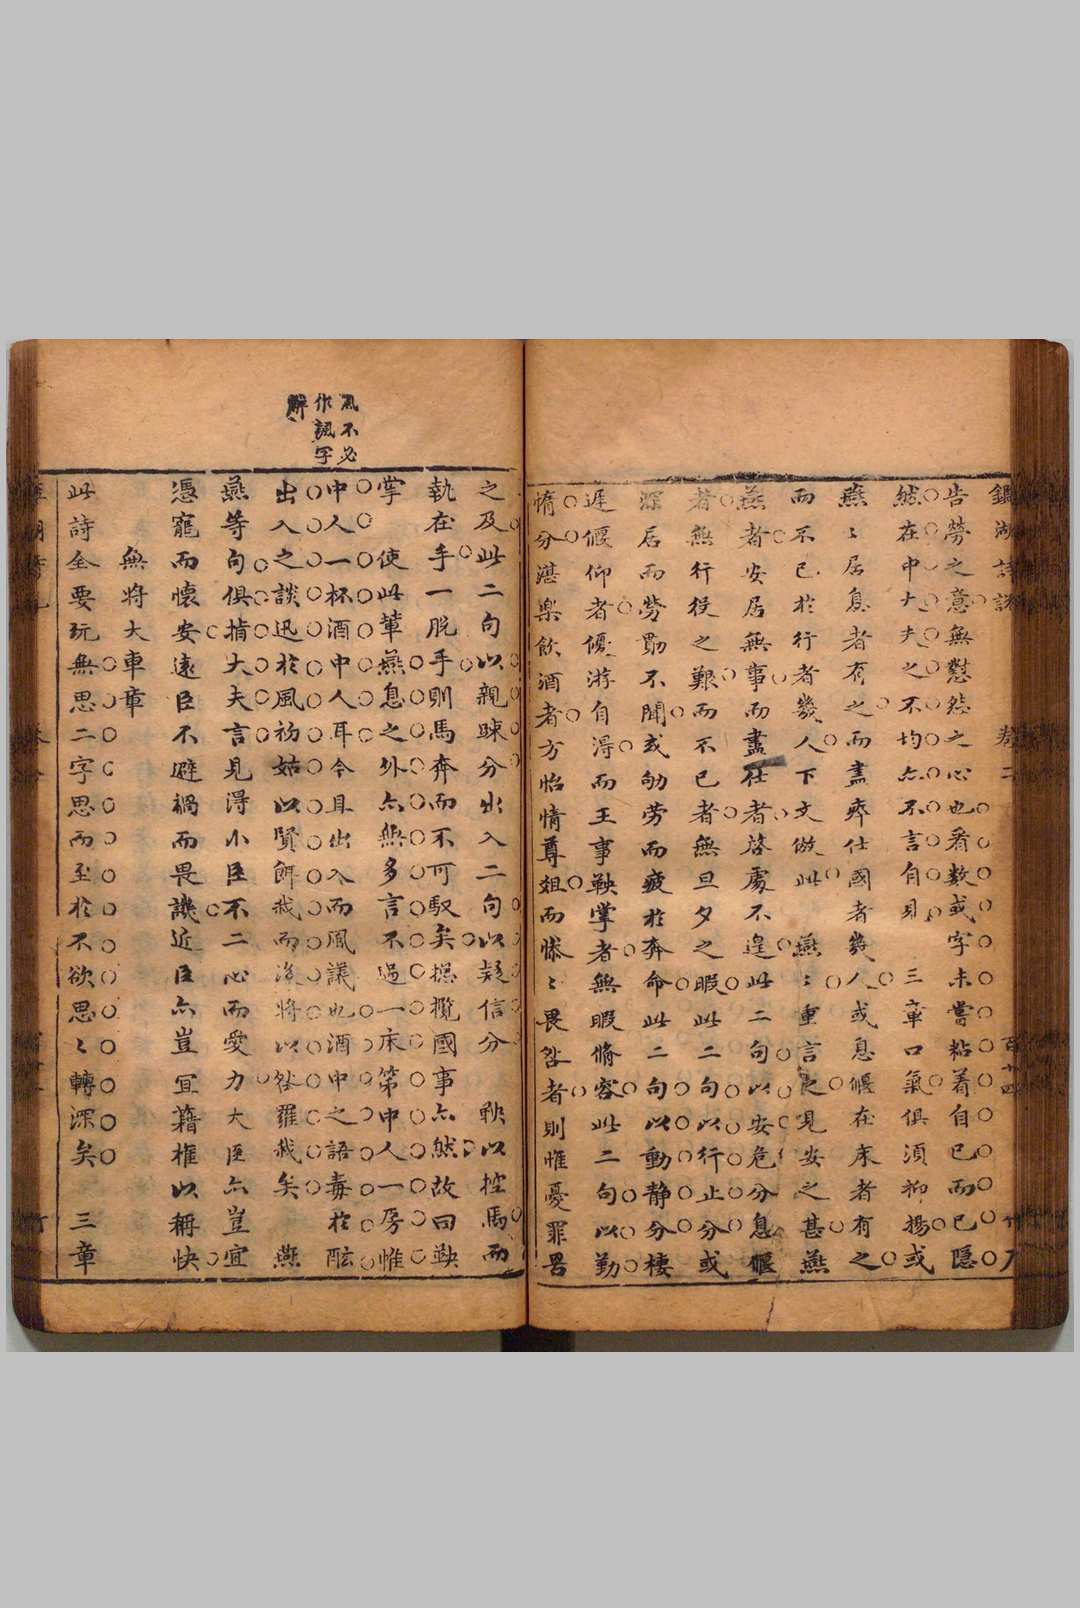 鑑湖詩說 卷二 百十四
告勞之意無懟怨之心也看數或字未嘗粘着自己而已隱
然在中大夫之不均亦不言自見 三章口氣俱須抑揚或
燕〻居息者有之而盡瘁仕國者幾人或息偃在床者有之
而不已於行者幾人下文倣此 燕〻重言之見安之甚燕
燕者安居無事而盡仕者啓處不遑此二句以安危分息偃
者無行役之艱而不已者無旦夕之暇此二句以行止分或
深居而勞勩不聞或劬劳而疲於奔命此二句以動静分棲
遲偃仰者優游自得而王事鞅掌者無暇脩容此二句以勤
惰分湛樂飲酒者方怡情尊俎而慘〻畏咎者則惟憂罪罟
之及此二句以親踈分出入二句以疑信分 鞅以控馬而
執在手一脱手則馬奔而不可馭矣摠攬國事亦然故曰鞅
掌 使此輩燕息之外亦無多言不過一床笫中人一房帷
中人一杯酒中人耳今且出入而風議也酒中之語毒於
出入之談迅於風初姑以賢餌我而後將以咎羅我矣 燕
燕等句俱指大夫言見得小臣不二心而愛力大臣亦豈宜
憑寵而懷安遠臣不避禍而畏譏近臣亦豈宜藉權以稱快
無將大車章
此詩全要玩無思二字思而至於不欲思〻轉深矣 三章
風不必
作諷字
解